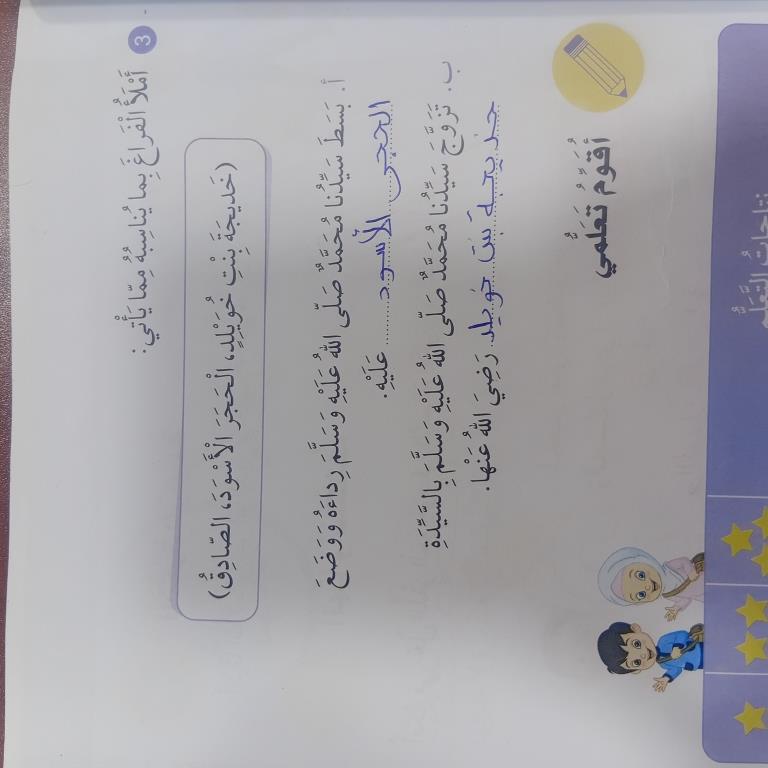 3 أَمْلَأُ الْفَراغَ بِما يُناسِبُهُ مِمّا يَأْتي:
(خَديجَةَ بِنْتِ خُوَيْلِدٍ، الْحَجَرَ الْأَسْوَدَ، الصّادِقُ)
أ. بَسَطَ سَيِّدُنا مُحَمَّدٌ صَلّى اللهُ عَلَيْهِ وَسَلَّمَ رِداءَهُ وَوَضَعَ
الحجر الأسود عَلَيْهِ.
ب. تَزَوَّجَ سَيِّدُنا مُحَمَّدٌ صَلّى اللهُ عَلَيْهِ وَسَلَّمَ بِالسَّيِّدَةِ
خديجة بنت خويلد رَضِيَ اللهُ عَنْها.
أُقَوِّمُ تَعَلُّمي
نِتاجاتُ التَّعَلُّمِ